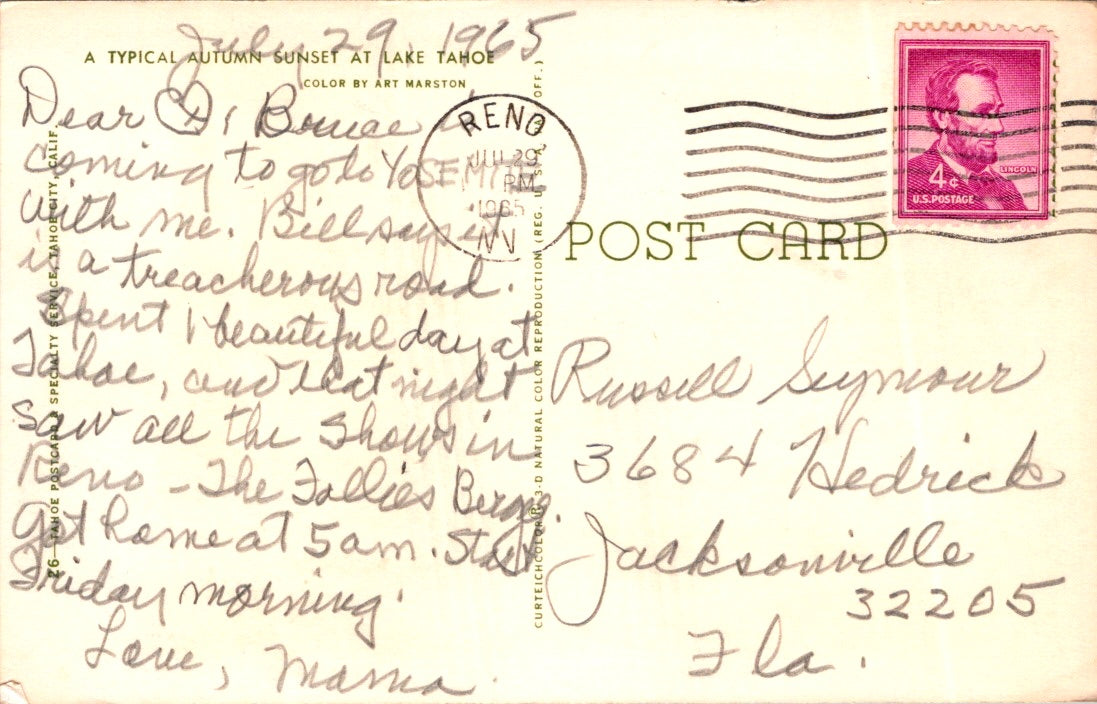 July 29, 1965
A TYPICAL AUTUMN SUNSET AT LAKE TAHOE
COLOR BY ART MARSTON
Dear
coming to go to YOSEMITE
with me. Bill says it
is a treacherous road.
Spent 1 beautiful day at
Tahoe, and last night
saw all the shows in
Reno - The Follies Berg.
Got home at 5 am. Start
Friday morning.
Love, Mama
26—TAHOE POSTCARD & SPECIALTY SERVICE, TAHOE CITY, CALIF.
CURTEICHCOLOR® 3-D NATURAL COLOR REPRODUCTION (REG. U.S.A. PAT. OFF.)
RENO
JUL 29
PM
1965
NV
LINCOLN
4¢
U.S. POSTAGE
POST CARD
Russell Seymour
3684 Hedrick
Jacksonville
32205
Fla.